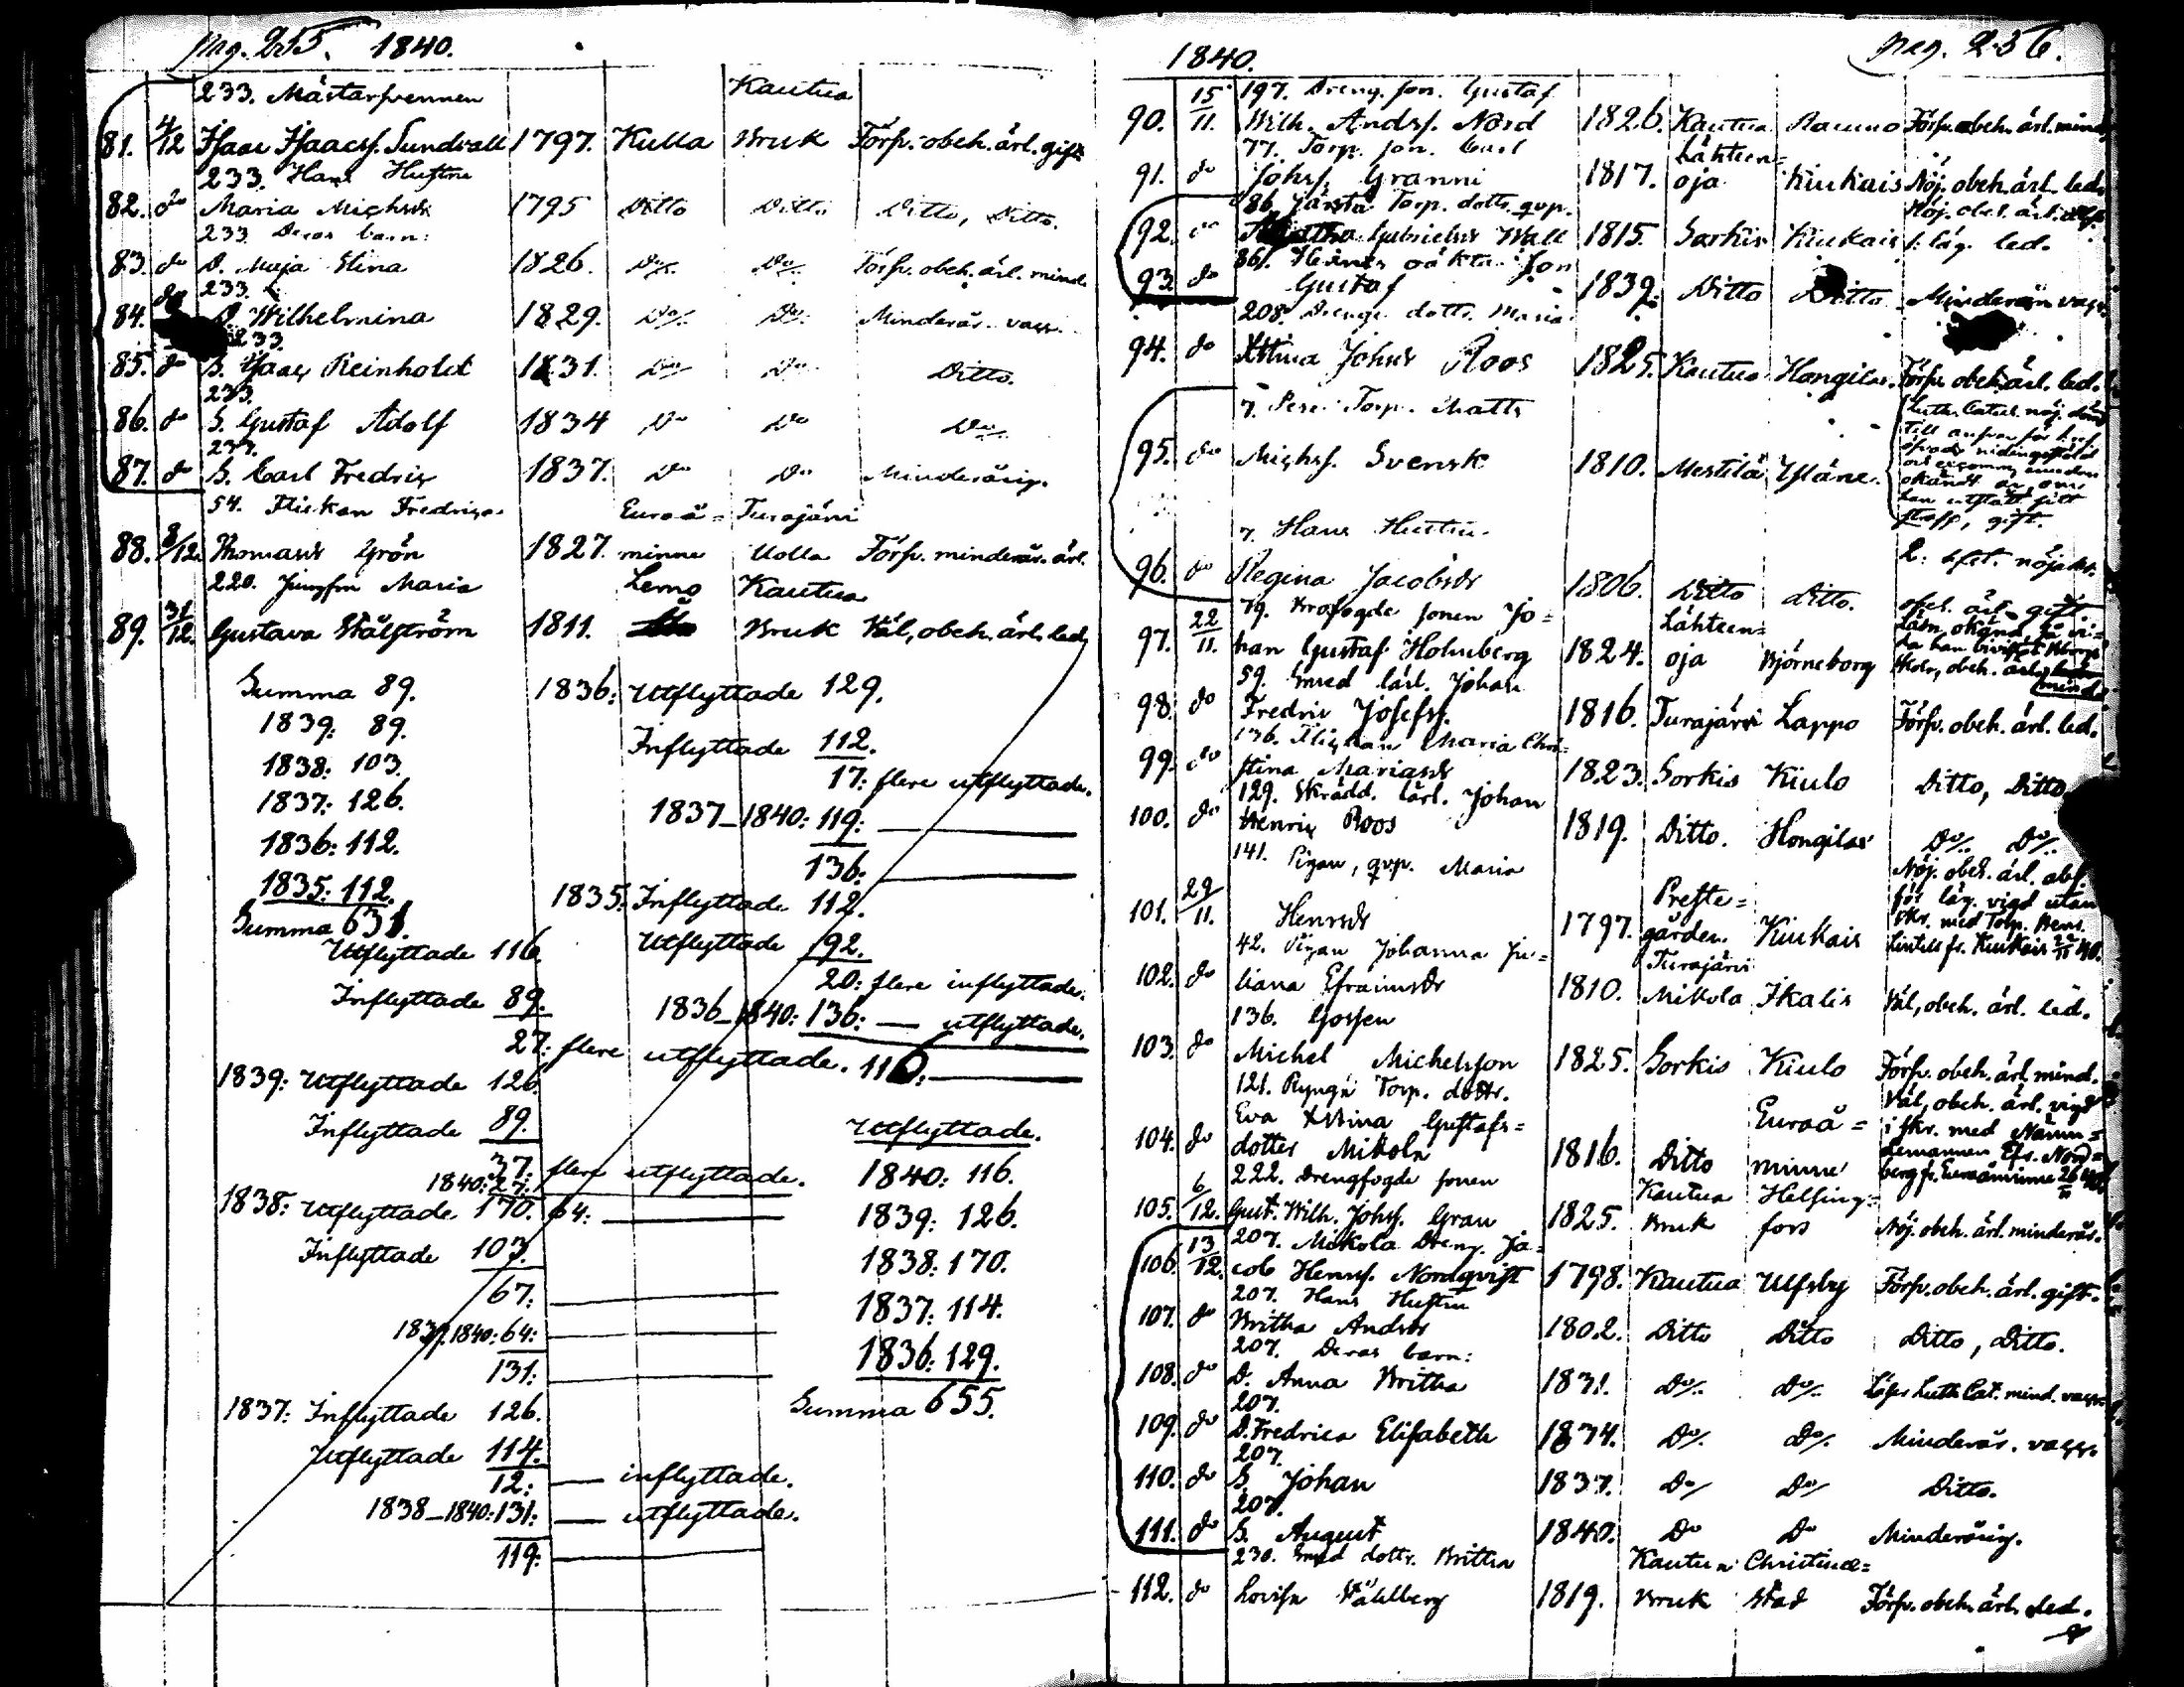 pag. 255. 1840.
233. Mästarsvennen Kautua
81. 4/12 Isaac Isaacss. Sundvall 1797. Kulla Bruk Försv. obeh. ärl. gift
233. Hans Hustru
82. do Maria Michsdr 1795 Ditto Ditto Ditto, Ditto.
233. Deras barn:
83. do D. Maja Stina 1826. Do/. Do/. Försv. obeh. ärl. mind.
233.
84. do D. Wilhelmina 1829. Do/. Do/. Minderår. vacc.
233.
85. do S. Isaac Reinholdt 1831. Do/. Do Ditto.
233.
86. do S. Gustaf Adolf 1834 Do Do Do/.
233.
87. do S. Carl Fredric 1837. Do Do Minderårig.
54. Flickan Fredrica Euraå= Turajärvi
88. 8/12. Thomasdr Grön 1827. minne Uolla Försv. minderår. ärl.
220. Jungfru Maria Lemo Kautua
89. 31/12. Gustava Wälström 1811. Bruk Väl, obeh. ärl. led.
Summa 89. 1836: Utflyttade 129.
1839: 89. Inflyttade 112.
1838: 103. 17: flere utflyttade.
1837: 126. 1837–1840: 119:
1836: 112. 136:
1835: 112. 1835: Inflyttade 112.
Summa 631.
Utflyttade 116. Utflyttade 92.
Inflyttade 89. 20: flere inflyttade.
1836–1840: 136: — utflyttade.
27: flere utflyttade. 116:
1839: Utflyttade 126.
Inflyttade 89. Utflyttade.
37: flere utflyttade. 1840: 116.
1840: 27:
1838: Utflyttade 170. 64: 1839: 126.
Inflyttade 103. 1838: 170.
67: 1837: 114.
1839,1840: 64: 1836: 129.
131: Summa 655.
1837: Inflyttade 126.
Utflyttade 114.
12: — inflyttade.
1838–1840: 131: — utflyttade.
119:
1840. pag. 256.
197. Dreng. son. Gustaf
90. 15/11. Wilh. Andss. Nord 1826. Kautua Raumo Försv. obeh. ärl. mind.
77. Torp. son. Carl Lähteen=
91. do Johss. Granni 1817. oja Kiukais Nöj. obeh. ärl. led.
86. Torp. dottr. qvp. Nöj. obeh. ärl.
92. do Gabrielsdr Wall 1815. Sorkis Kiukais f. läg. led.
86. Hennes oäkta Son
93. do Gustaf 1839. Ditto Ditto Minderår. vacc.
208. Drengs dottr. Maria
94. do Kstina Johsdr Roos 1825. Kautua Hongilax. Försv. obeh. ärl. led.
7. Torp. Matts
95. do Michss. Svensk 1810. Mestilä Yläne. gift.
7. Hans Hustru.
96. do Regina Jacobsdr 1806. Ditto Ditto. obeh. ärl. gift
79. Brofogde sonen Jo= Lähteen=
97. 22/11. han Gustaf Holmberg 1824. oja Björneborg
59. Smed lärl. Johan
98. do Fredric Josefss. 1816. Turajärvi Lappo Försv. obeh. ärl. led.
136. Flickan Maria Chri=
99. do stina Mariasdr 1823. Sorkis Kiulo Ditto, Ditto.
129. Skrädd. lärl. Johan
100. do Henric Roos 1819. Ditto. Hongilax Do/. Do/.
141. Pigan, qvp. Maria Nöj. obeh. ärl. abs.
101. 29/11. Henrsdr 1797. Preste=
gården. Kiukais för läg. vigd utan
skr. med Torp. fr. Kiukais 22/11 40.
42. Pigan Johanna Ju= Turajärvi
102. do liana Efraimsdr 1810. Mikola Ikalis Väl, obeh. ärl. led.
136. Gossen
103. do Michel Michelsson 1825. Sorkis Kiulo Försv. obeh. ärl. mind.
121. Torp. dottr. Väl, obeh. ärl. vigd
Eva Kstina Gustafs= Euraå= i skr. med Näm=
104. do dotter Mikola 1816. Ditto minne demannen Efr. Nord=
berg fr. Euraåminne
222. Drengfogde sonen Kautua Helsing=
105. 6/12. Gust. Wilh. Johss. Gran 1825. Bruk fors Nöj. obeh. ärl. minderår.
207. Mikola Dreng. Ja=
106. 13/12. cob Henrss. Nordqvist 1798. Kautua Ulfsby Försv. obeh. ärl. gift.
207. Hans Hustru
107. do Britha Andsdr 1802. Ditto Ditto Ditto, Ditto.
207. Deras barn:
108. do D. Anna Britha 1831. Do/. Do/. Luth. Cat. mind. vacc.
207.
109. do D. Fredrica Elisabeth 1834. Do/. Do/. Minderår. vacc.
207.
110. do S. Johan 1837. Do/ Do/ Ditto.
207.
111. do S. August 1840. Do Do Minderårig.
230. Smed dottr. Britha Kautua Christinæ=
112. do Lovisa Ståhlberg 1819. Bruk stad Försv. obeh. ärl. led.